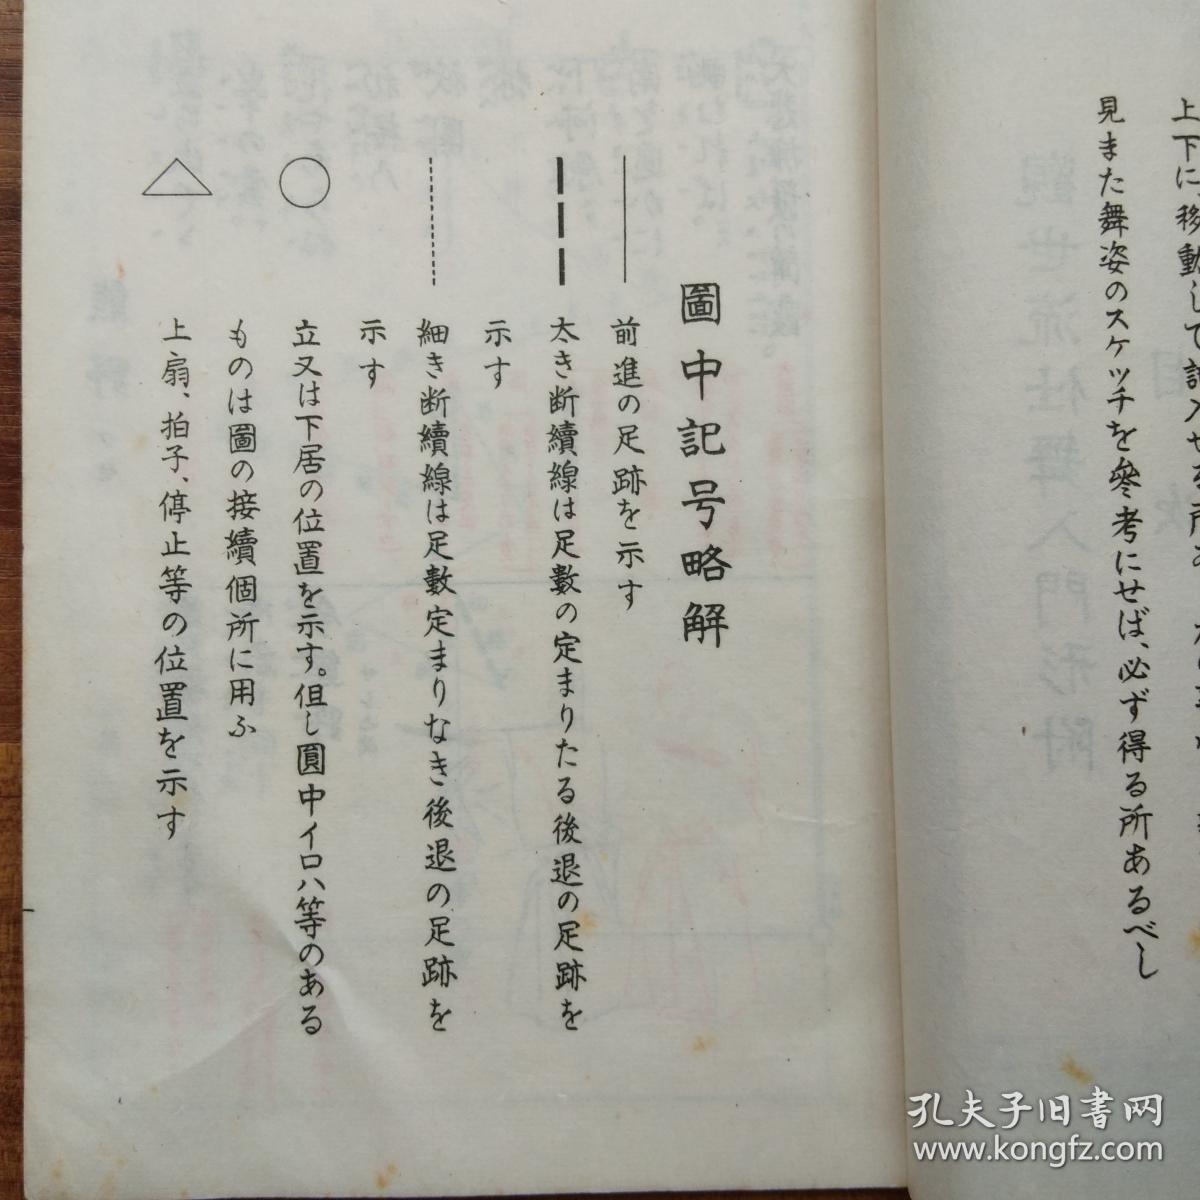 上下に、移動して記入せる所
見また舞姿のスケッチを參考にせば、必ず得る所あるべし
圖中記号略解
前進の足跡を示す
太き断續線は足數の定まりたる後退の足跡を
示す
細き断續線は足數定まりなき後退の足跡を
示す
立又は下居の位置を示す。但し圓中イロハ等のある
ものは圖の接續個所に用ふ
上扇、拍子、停止等の位置を示す
孔夫子旧書网
www.kongfz.com